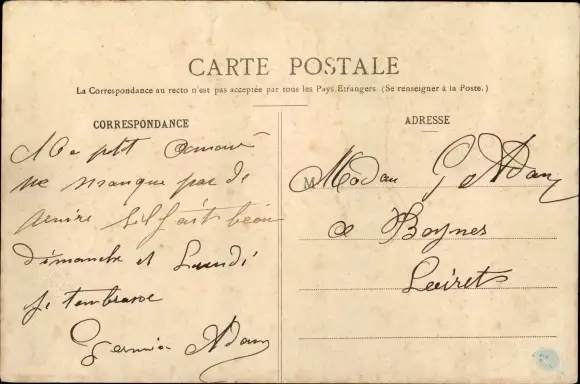 CARTE POSTALE
La Correspondance au recto n'est pas acceptée par tous les Pays Etrangers (Se renseigner à la Poste.)
CORRESPONDANCE
Ma ptit
ne manque pas de
venire sil fait beau
dimanche et Lundi
je tembrasse
Germin Adam
ADRESSE
M Madam G Adam
a Boynes
Loiret